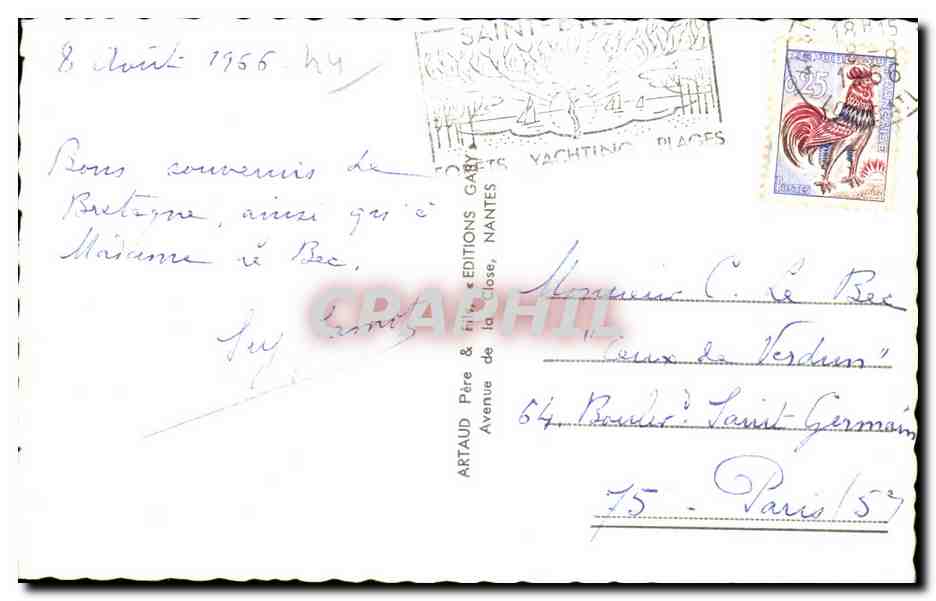 8 Août 1966
44
Bons souvenirs de
Bretagne, ainsi qu'à
Madame Le Bec.
SAINT-BRE
FORETS YACHTING PLAGES
18H15
8-8
0,25
POSTES
ARTAUD Père & Fils « EDITIONS GABY »
Avenue de la Close, NANTES
CPARAPHIL
Monsieur C. Le Bec
"Ceux de Verdun"
64, Boulevd Saint-Germain
75 - Paris (5e)